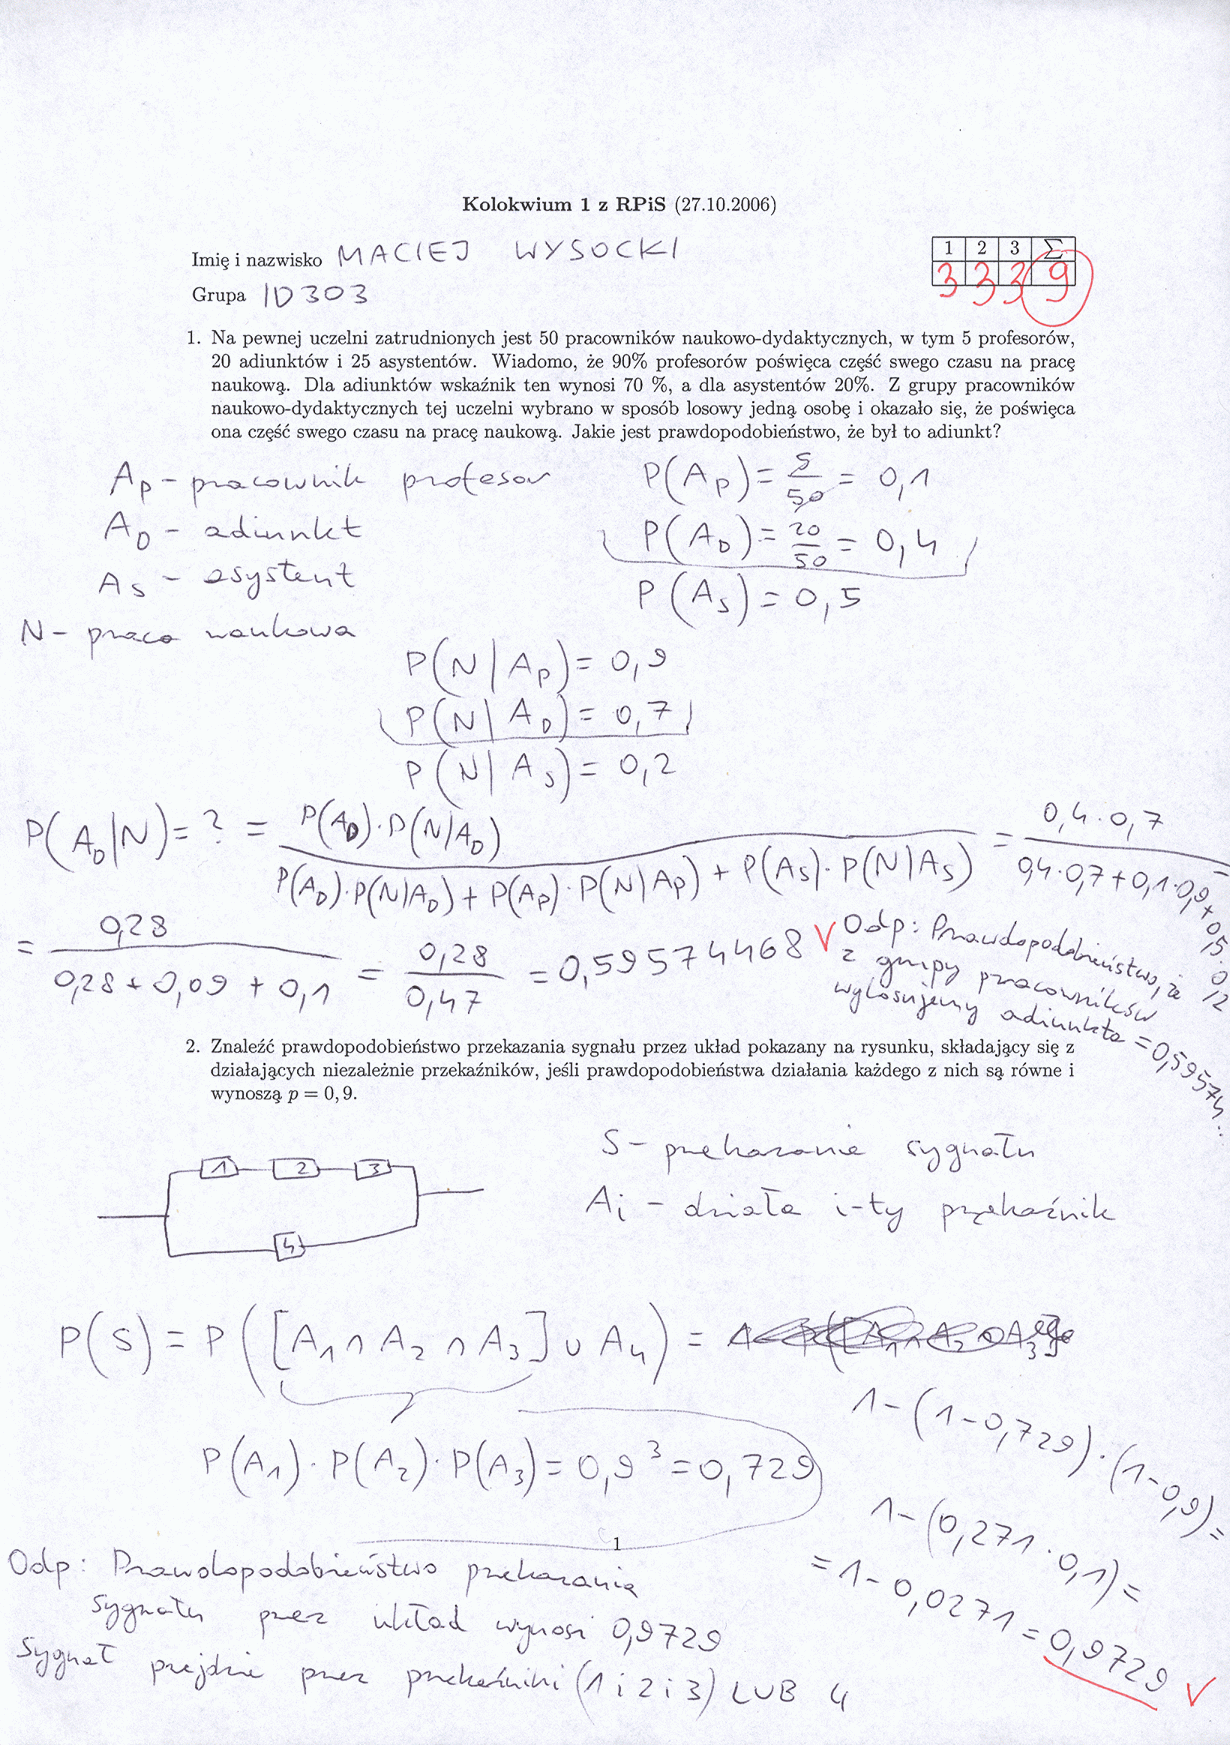 Kolokwium 1 z RPiS (27.10.2006)
Imię i nazwisko MACIEJ WYSOCKI
Grupa ID303
1 2 3 Σ
3 3 3 9
1. Na pewnej uczelni zatrudnionych jest 50 pracowników naukowo-dydaktycznych, w tym 5 profesorów,
20 adiunktów i 25 asystentów. Wiadomo, że 90% profesorów poświęca część swego czasu na pracę
naukową. Dla adiunktów wskaźnik ten wynosi 70 %, a dla asystentów 20%. Z grupy pracowników
naukowo-dydaktycznych tej uczelni wybrano w sposób losowy jedną osobę i okazało się, że poświęca
ona część swego czasu na pracę naukową. Jakie jest prawdopodobieństwo, że był to adiunkt?
A_P - pracownik profesor
A_D - adiunkt
A_S - asystent
N - praca naukowa
P(A_P) = 5/50 = 0,1
P(A_D) = 20/50 = 0,4
P(A_S) = 0,5
P(N|A_P) = 0,9
P(N|A_D) = 0,7
P(N|A_S) = 0,2
P(A_D|N) = ? = P(A_D)·P(N|A_D) / P(A_D)·P(N|A_D) + P(A_P)·P(N|A_P) + P(A_S)·P(N|A_S) = 0,4·0,7 / 0,4·0,7 + 0,1·0,9 + 0,5·0,2
= 0,28 / 0,28 + 0,09 + 0,1 = 0,28 / 0,47 = 0,59574468 V
Odp: Prawdopodobieństwo, że
z grupy pracowników
wylosujemy adiunkta = 0,59574...
2. Znaleźć prawdopodobieństwo przekazania sygnału przez układ pokazany na rysunku, składający się z
działających niezależnie przekaźników, jeśli prawdopodobieństwa działania każdego z nich są równe i
wynoszą p = 0, 9.
1 2 3
4
S - przekazanie sygnału
A_i - działa i-ty przekaźnik
P(S) = P([A_1 ∩ A_2 ∩ A_3] ∪ A_4) =
P(A_1)·P(A_2)·P(A_3) = 0,9³ = 0,729
1-(1-0,729)·(1-0,9) =
1-(0,271·0,1) =
= 1-0,0271 = 0,9729 V
1
Odp: Prawdopodobieństwo przekazania
sygnału przez układ wynosi 0,9729
Sygnał przejdzie przez przekaźniki (1 i 2 i 3) LUB 4